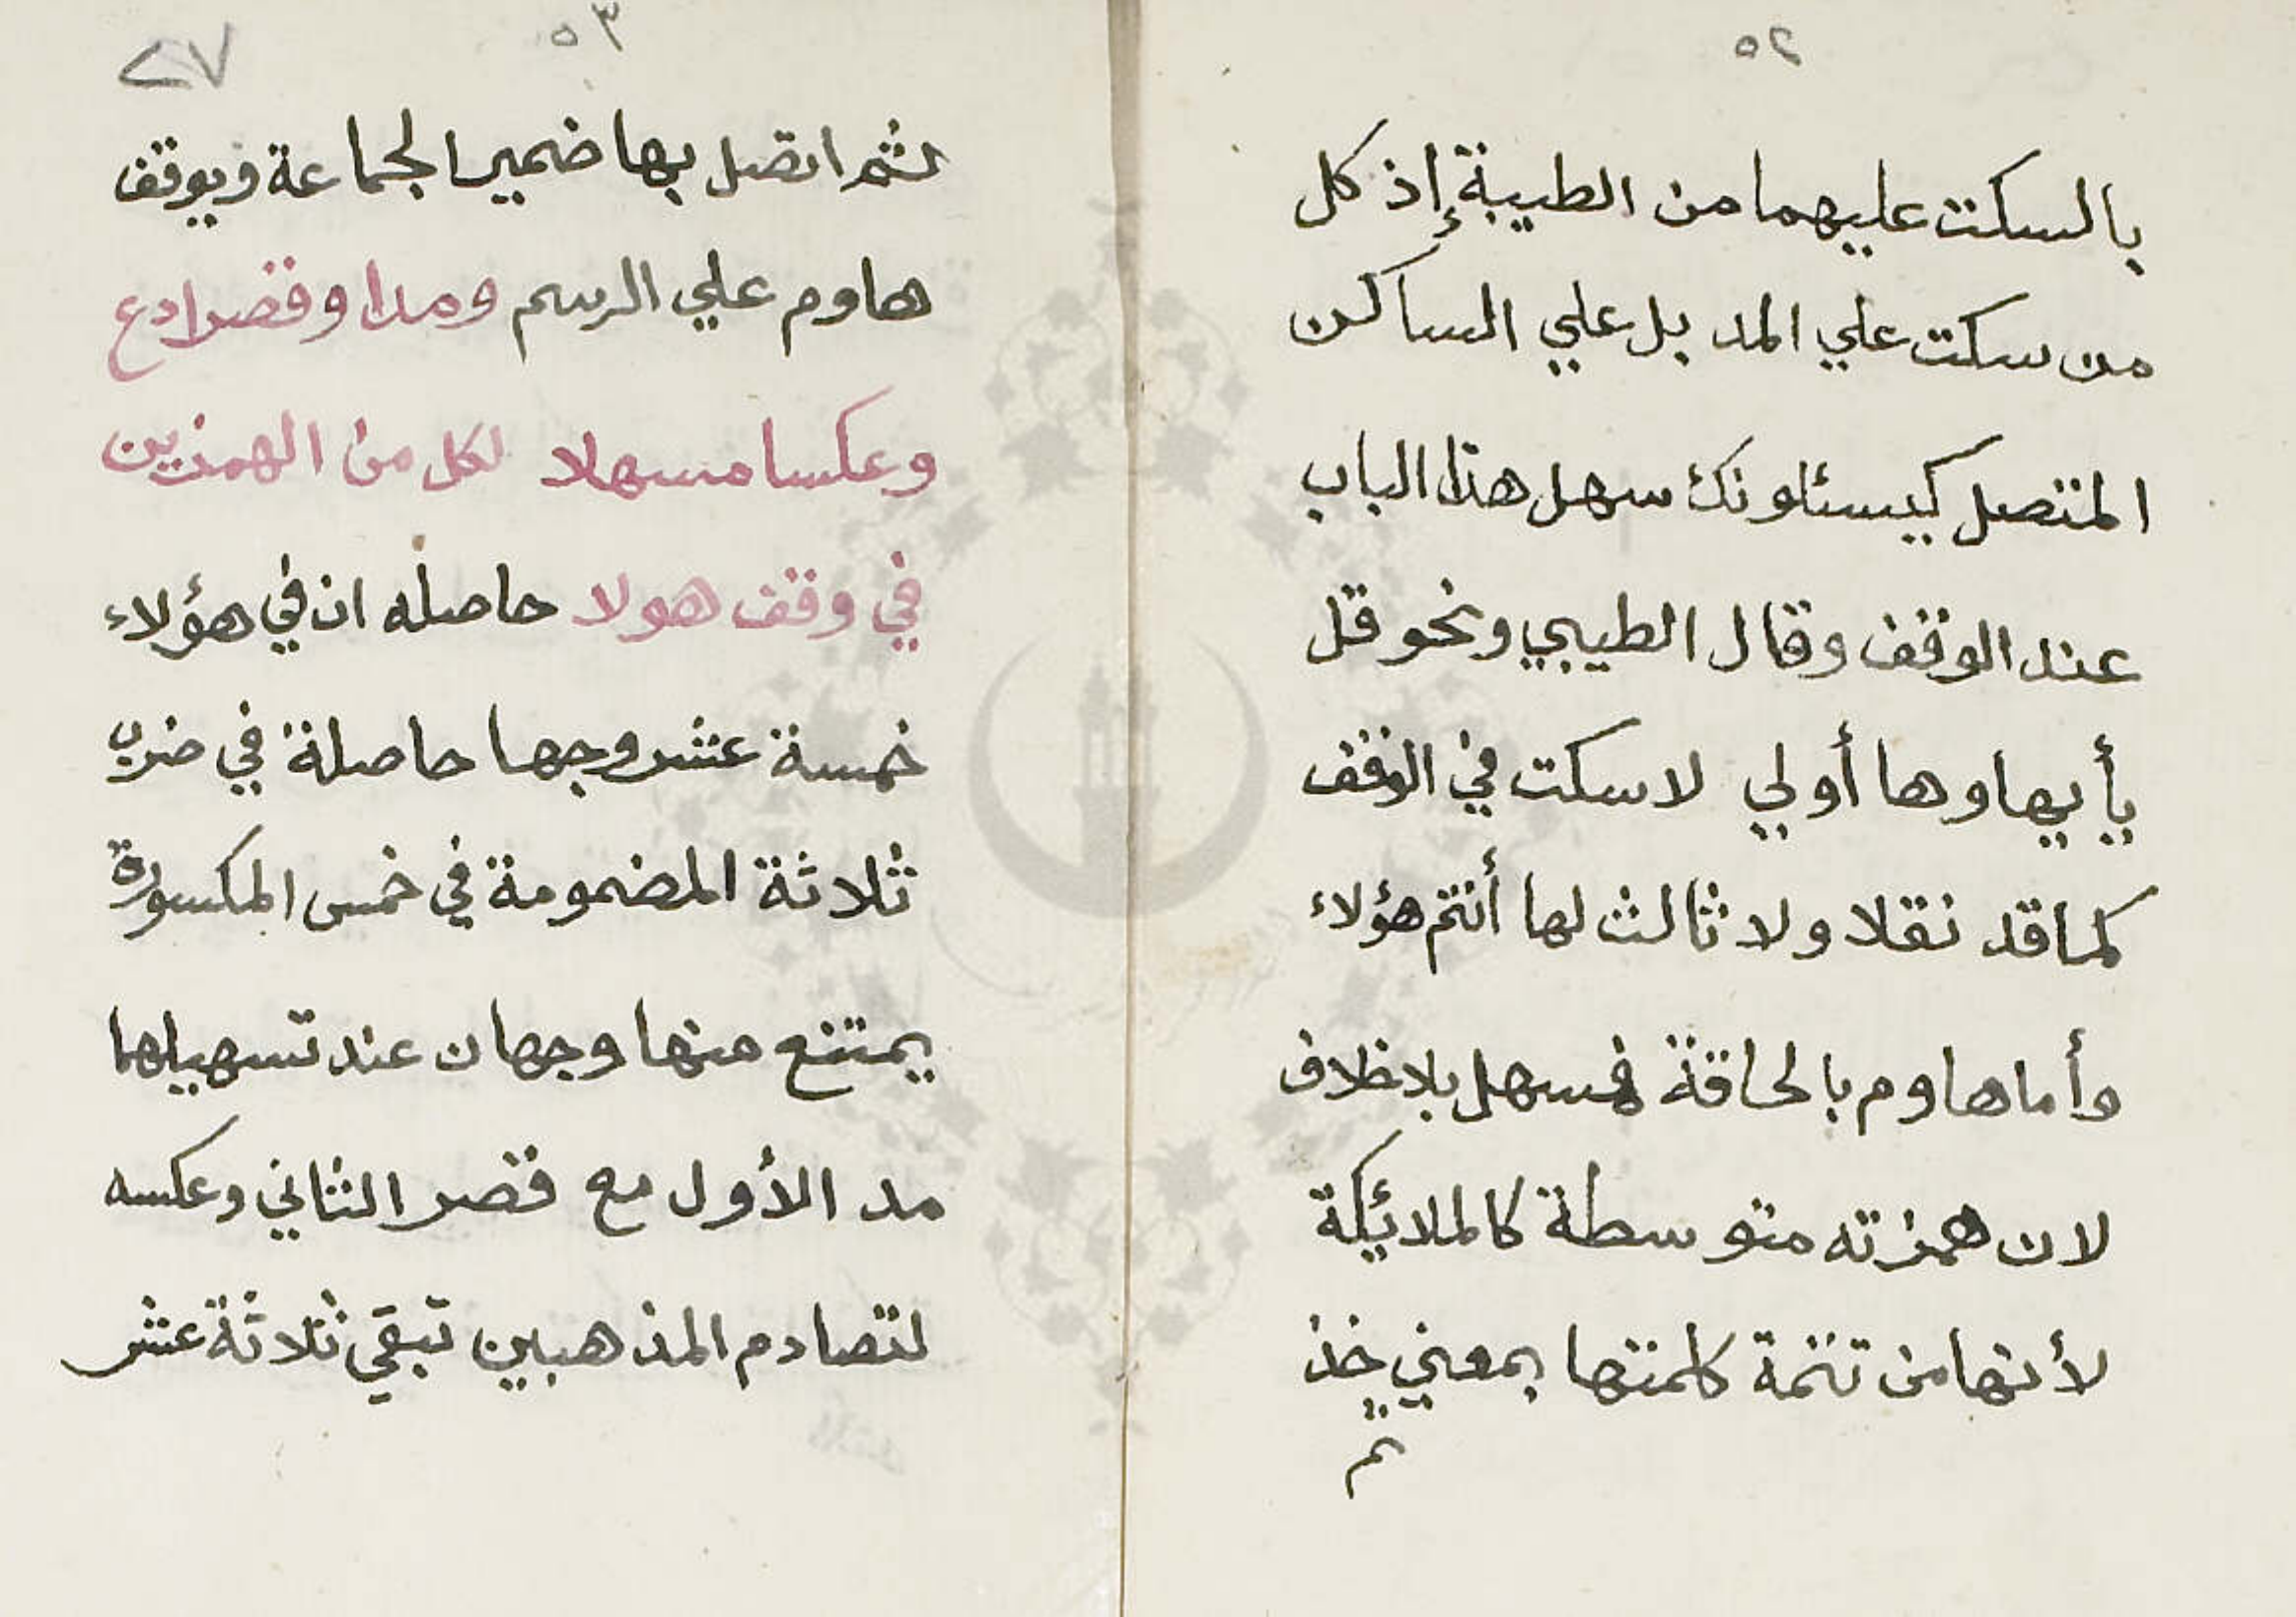 ٥٢
بالسكت عليهما من الطيبة إذ كل
من سكت علي المد بل علي الساكن
المتصل كيسئلونك سهل هذا الباب
عند الوقف وقال الطيبي ونحو قل
يأيها وها أولي لا سكت في الوقف
كما قد نقلا ولا ثالث لها أنتم هؤلاء
وأما هاوم بالحاقة فسهل بلا خلاف
لان همزته متوسطة كالملائكة
لأنها من تتمة كلمتها بمعني خذ
ثم
٥٣
٢٧
ثم اتصل بها ضمير الجماعة ويوقف
هاوم علي الرسم ومدا وقصرا دع
وعكسا مسهلا لكل من الهمزين
في وقف هولا حاصله ان في هؤلاء
خمسة عشر وجها حاصلة في ضرب
ثلاثة المضمومة في خمس المكسورة
يمتنع منها وجهان عند تسهيلها
مد الأول مع قصر الثاني وعكسه
لتصادم المذهبين تبقي ثلاثة عشر